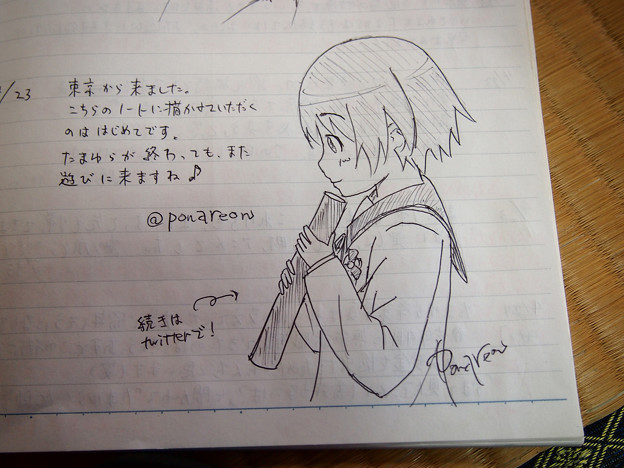 /23
東京から来ました。
こちらのノートに描かせていただく
のははじめてです。
たまゆらが終わっても、また
遊びに来ますね♪
@ponareon
続きは
twitterで!
ponareon